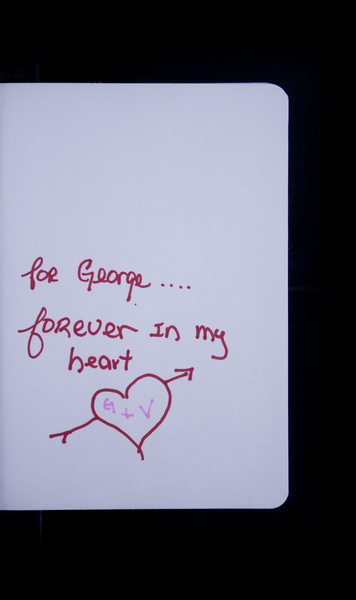 for George ....
forever in my
heart
G + V